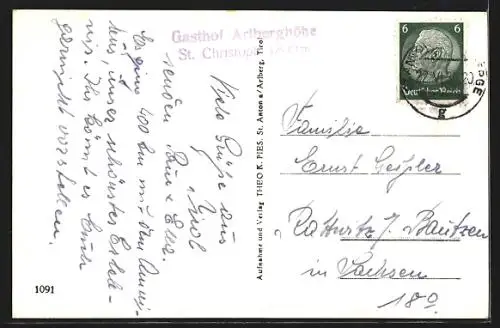 Gasthof Arlberghöhe
St. Christoph
Viele Grüße aus
Tirol
senden
Kurt & Elle.
Es sind 400 km mit dem
unser schönstes
Ihr könnt es Euch
garnicht vorstellen.
1091
Aufnahme und Verlag THEO K. PIES, St. Anton a/Arlberg, Tirol
6 6
Deutsches Reich
g
Familie
Ernst Geißler
Rattwitz b. Bautzen
in Sachsen
18⁰